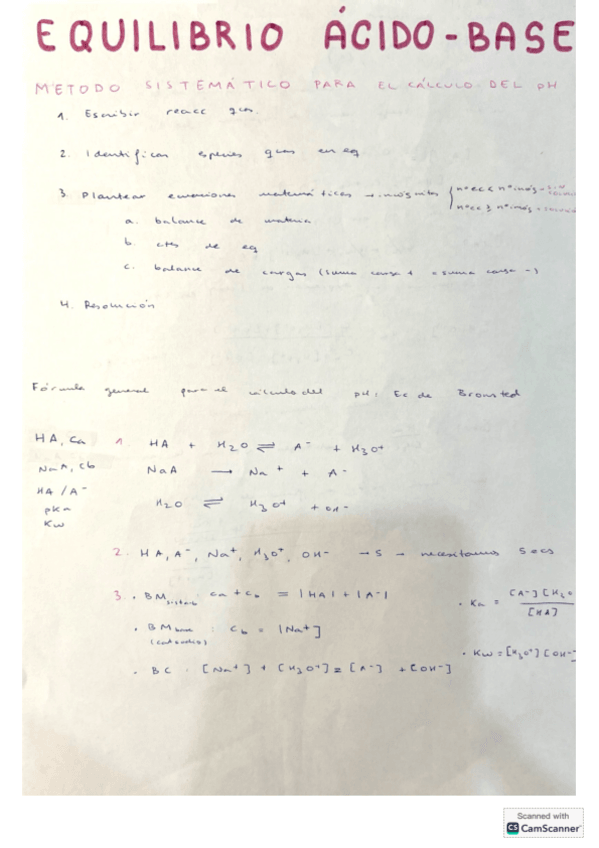 EQUILIBRIO ÁCIDO-BASE
MÉTODO SISTEMÁTICO PARA EL CÁLCULO DEL pH
1. Escribir reacc qcas.
2. Identificar especies qcas en eq
3. Plantear ecuaciones matemáticas → incógnitas { nº ec < nº incóg
nº ec ≥ nº incóg
a. balance de materia
b. ctes de eq
c. balance de cargas (suma carga + = suma carga -)
4. Resolución
Fórmula general para el cálculo del pH: Ec de Bronsted
HA, Ca 1. HA + H₂O ⇌ A⁻ + H₃O⁺
NaA, Cb NaA → Na⁺ + A⁻
HA / A⁻
pKa H₂O ⇌ H₃O⁺ + OH⁻
Kw
2. HA, A⁻, Na⁺, H₃O⁺, OH⁻ → 5 → necesitamos 5 ecs
3. • BM sistema : Ca + Cb = |HA| + |A⁻| • Ka = [A⁻][H₃O
[HA]
• BM base : Cb = |Na⁺]
• Kw = [H₃O⁺][OH⁻
• BC : [Na⁺] + [H₃O⁺] = [A⁻] + [OH⁻]
Scanned with
CS CamScanner